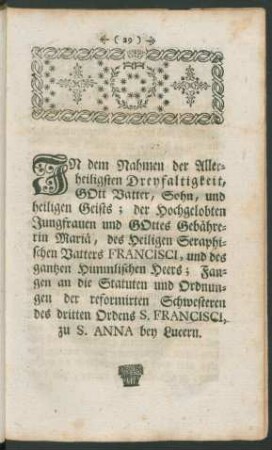 ( 29 )
IN dem Nahmen der Aller-
heiligsten Dreyfaltigkeit,
GOtt Vatter, Sohn, und
heiligen Geists; der Hochgelobten
Jungfrauen und GOttes Gebähre-
rin Mariä, des Heiligen Seraphi-
schen Vatters FRANCISCI, und des
gantzen Himmlischen Heers; Fan-
gen an die Statuten und Ordnun-
gen der reformirten Schwesteren
des dritten Ordens S. FRANCISCI,
zu S. ANNA bey Lucern.